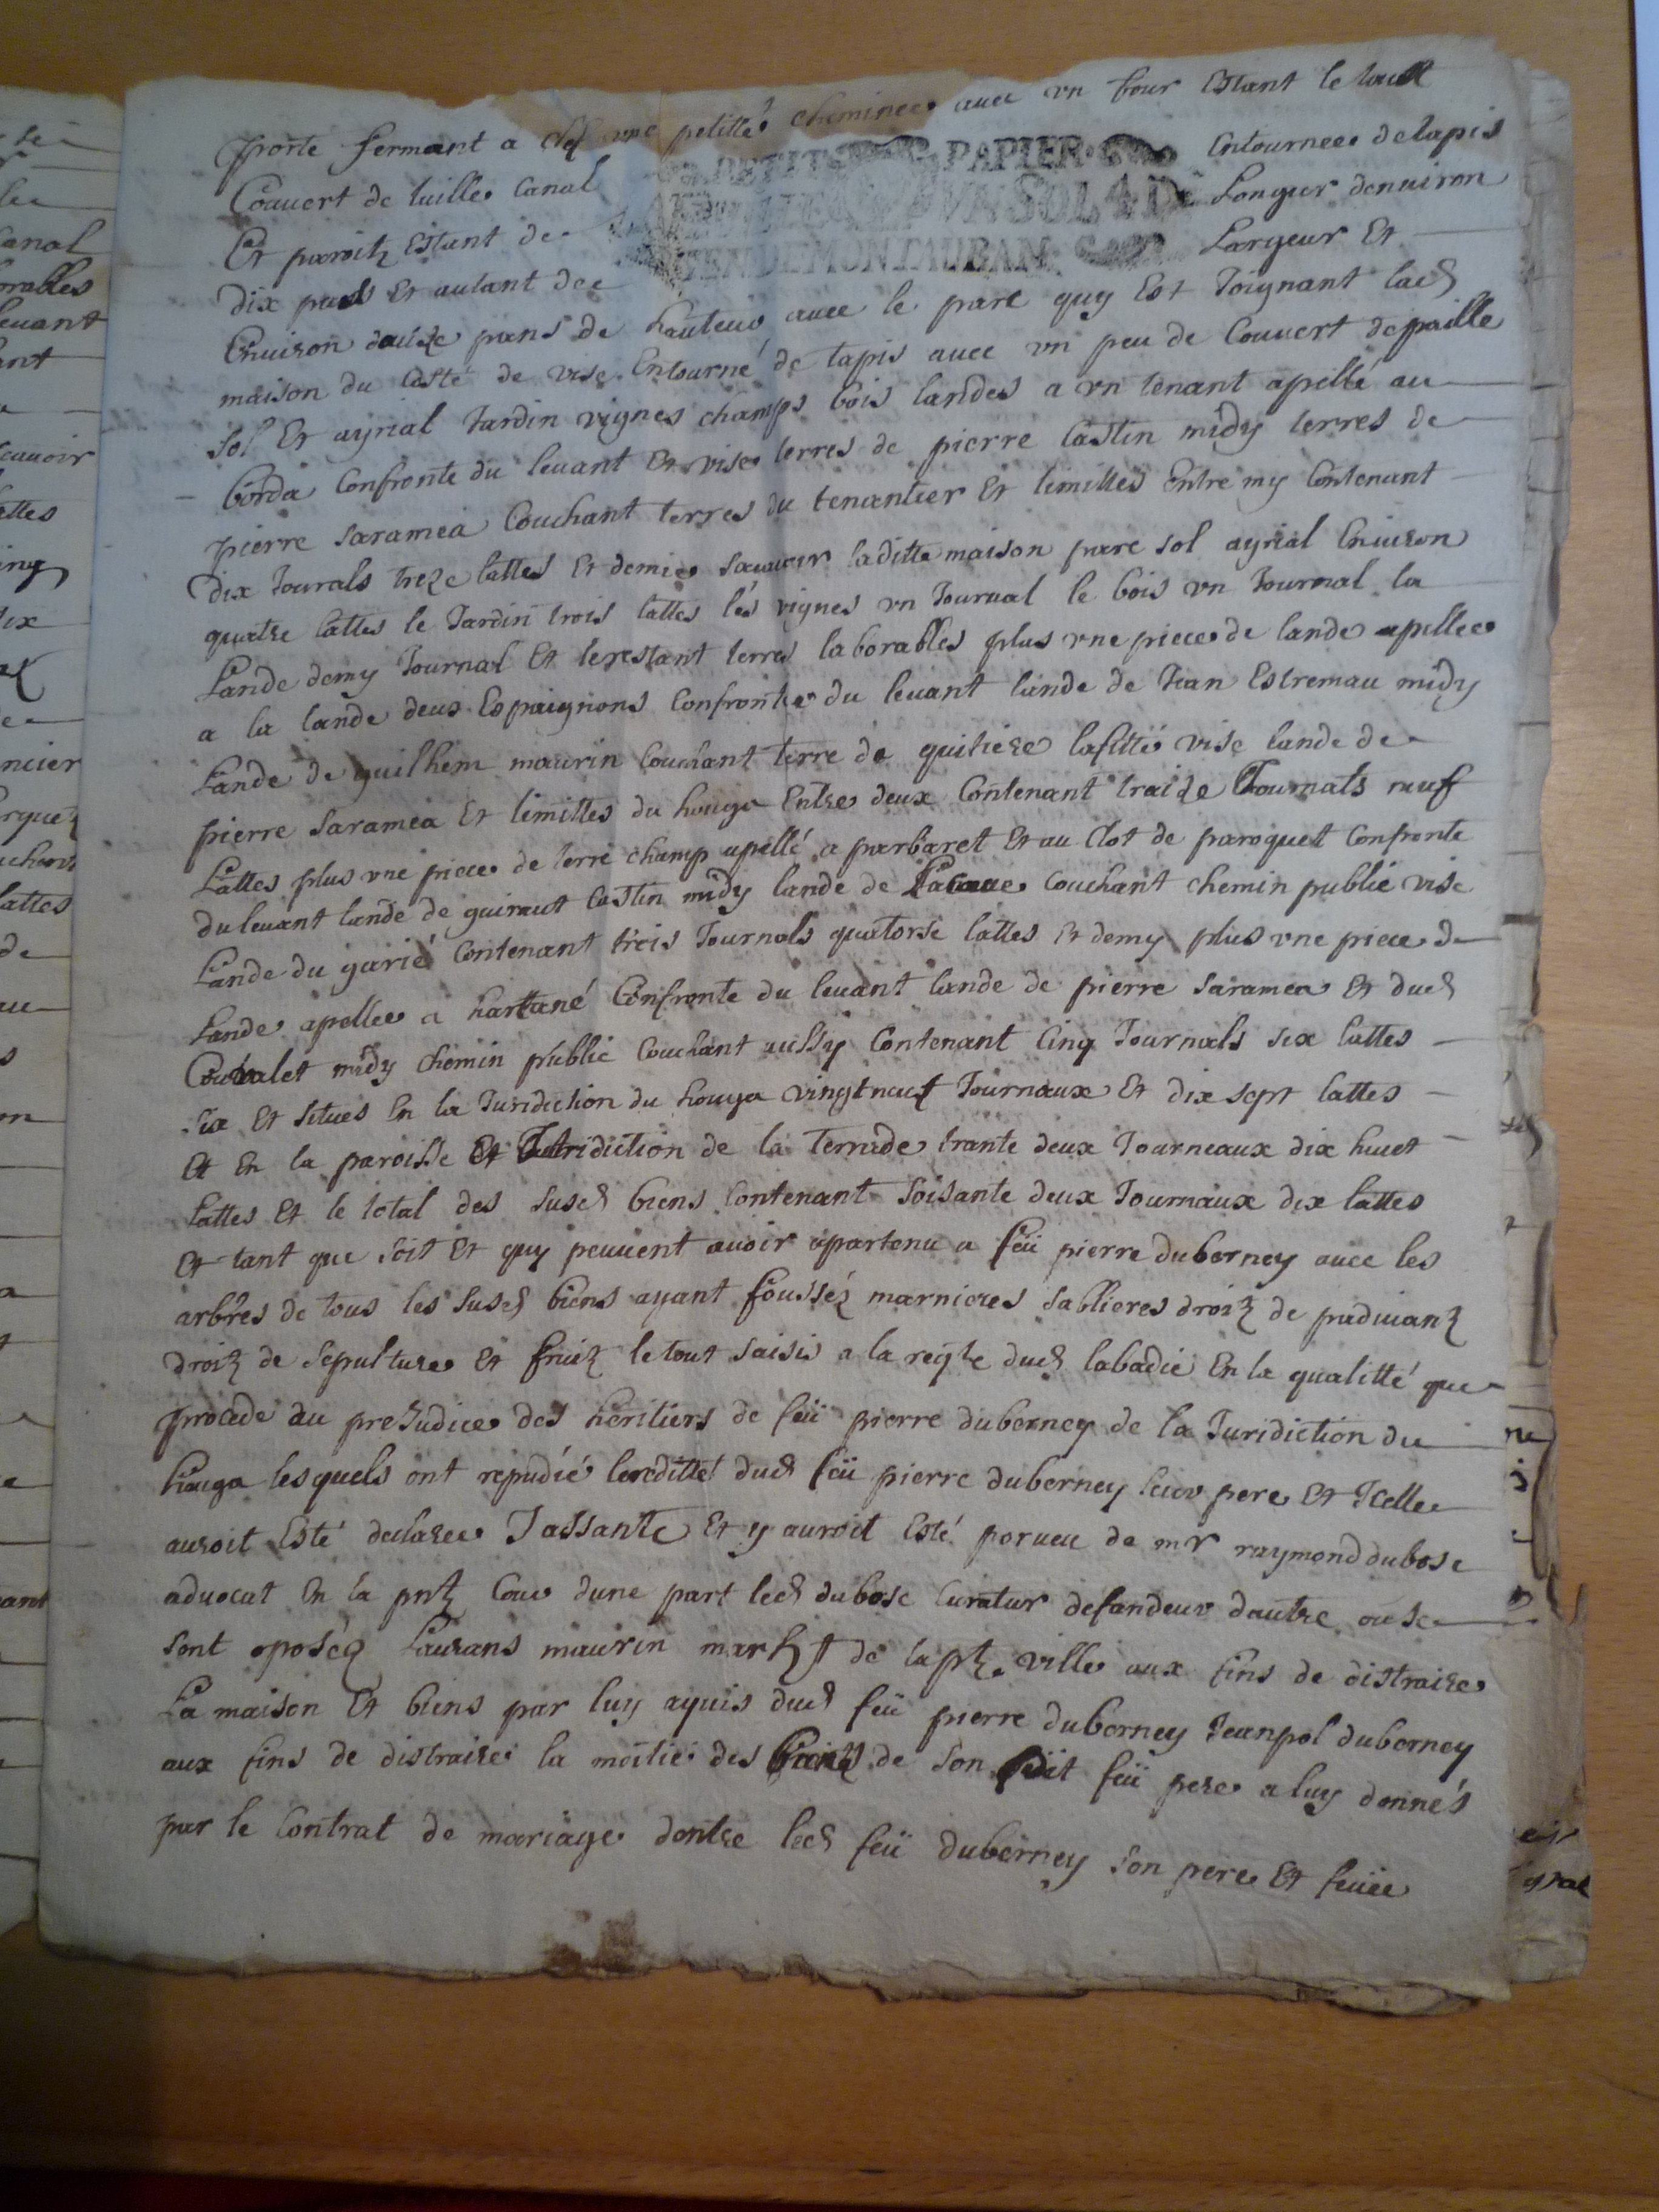 porte fermant a clef une petitte cheminee avec vn four Estant le tout
PETIT PAPIER
Couvert de tuille Canal Entournee de tapis
VN SOL 4 D
Et paroitz Estant de Longur denuiron
GEN DE MONTAUBAN
dix pas Et autant de Largeur Et
Enuiron douze pans de hauteur auec le parc quy Est Joignant lad
maison du Costé de vise Entourné de tapis auec vn peu de Couuert de paille
sol Et ayrial Jardin vignes champs bois landes a vn tenant apellé au
borda Confronte du leuant Et vise terres de pierre Castin midy terres de
pierre Saramea Couchant terres du tenantier Et limittes Entre my Contenant
dix Jourals treze lattes Et demie sauoir laditte maison parc sol ayrial Enuiron
quatre lattes le Jardin trois lattes lés vignes vn Journal le bois vn Journal la
Lande demy Journal Et le restant terres laborables plus vne piece de lande apellee
a la lande deus Espaignons Confronte du leuant lande de Jean Estremau midy
Lande de guilhem maurin Couchant terre de guiliere lafitte vise lande de
pierre Saramea Et limittes du houga Entre deux Contenant traize Journals neuf
Lattes plus vne piece de terre champ apellé a parbaret Et au Clot de paroquet Confronte
du leuant lande de guiraut Castin midy lande de Lacaue Couchant chemin public vise
Lande du garié Contenant trois Journals quatorse lattes Et demy plus vne piece de
Lande apellee a hartané Confronte du leuant lande de pierre Saramea Et dud
Couralet midy chemin public Couchant aussy Contenant Cinq Journals six lattes
six Et situes En la Juridiction du houga vingtneuf Journaux Et dix sept lattes
Et En la paroisse Et Juridiction de la Terrade trante deux Journeaux dix huet
lattes Et le total des susd biens Contenant soisante deux Journaux dix lattes
Et tant que soit Et quy peuuent auoir apartenu a feü pierre duberney auec les
arbres de tous les susd biens ayant foussez marnieres sablieres droitz de paduianz
droitz de sepulture Et fruitz le tout saisis a la reqte dud labadie En la qualitté que
procede au preJudice des heritiers de feü pierre duberney de la Juridiction du
houga lesquels ont repudié lereditté dud feü pierre duberney leur pere Et Icelle
auroit Esté declaree Jassante Et y auroit Esté porueu de mr raymond dubosc
aduocat En la pntz Cour dune part led dubosc Curatur defandeur dautre ou se
sont oposéz Laurans maurin march͞t de la pñte ville aux fins de distraire
La maison Et biens par luy aquis dud feü pierre duberney Jeanpol duberney
aux fins de distraire la moitié des biens de son dit feü pere a luy donnés
par le Contrat de mariage dentre led feü duberney son pere Et feüe